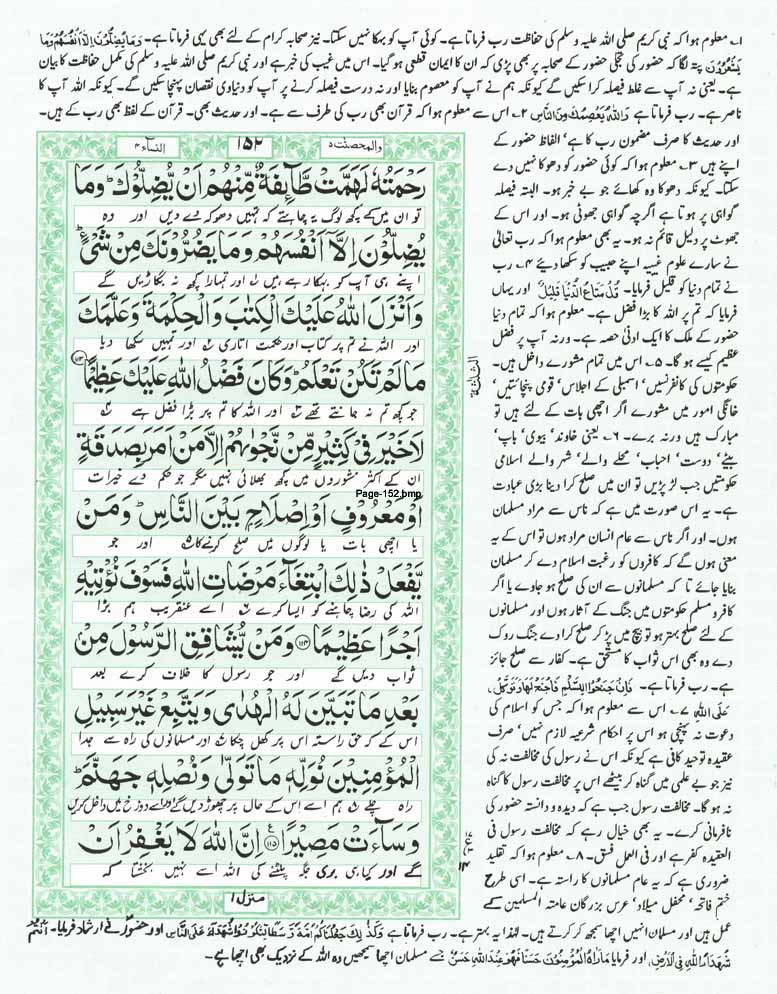 ۱۔ معلوم ہوا کہ نبی کریم صلی اللہ علیہ وسلم کی حفاظت رب فرماتا ہے۔ کوئی آپ کو بہکا نہیں سکتا۔ نیز صحابہ کرام کے لئے بھی یہی فرماتا ہے۔ وَمَا يُضِلُّوْنَ اِلَّا اَنْفُسَهُمْ وَمَا
يَشْعُرُوْنَ پتہ لگا کہ حضور کی تجلی حضور کے صحابہ پر بھی پڑی کہ ان کا ایمان قطعی ہو گیا۔ اس میں غیب کی خبر ہے اور نبی کریم صلی اللہ علیہ وسلم کی مکمل حفاظت کا بیان
ہے۔ یعنی نہ آپ سے غلط فیصلہ کرا سکیں گے کیونکہ ہم نے آپ کو معصوم بنایا اور نہ درست فیصلہ کرنے پر آپ کو دنیاوی نقصان پہنچا سکیں گے۔ کیونکہ اللہ آپ کا
ناصر ہے۔ رب فرماتا ہے وَاللهُ يَعْصِمُكَ مِنَ النَّاسِ ۲۔ اس سے معلوم ہوا کہ قرآن بھی رب کی طرف سے ہے۔ اور حدیث بھی۔ قرآن کے لفظ بھی رب کے ہیں۔
اور حدیث کا صرف مضمون رب کا ہے، الفاظ حضور کے
اپنے ہیں ۳۔ معلوم ہوا کہ کوئی حضور کو دھوکا نہیں دے
سکتا۔ کیونکہ دھوکا وہ کھائے جو بے خبر ہو۔ البتہ فیصلہ
گواہی پر ہوتا ہے اگرچہ گواہی جھوٹی ہو۔ اور اس کے
جھوٹ پر دلیل قائم نہ ہو۔ یہ بھی معلوم ہوا کہ رب تعالیٰ
نے سارے علوم غیبیہ اپنے حبیب کو سکھا دیئے ۴۔ رب
نے تمام دنیا کو قلیل فرمایا۔ قُلْ مَتَاعُ الدُّنْيَا قَلِيْلٌ اور یہاں
فرمایا کہ تم پر اللہ کا بڑا فضل ہے۔ معلوم ہوا کہ تمام دنیا
حضور کے ملک کا ایک ادنیٰ حصہ ہے۔ ورنہ آپ پر فضل
عظیم کیسے ہو گا۔ ۵۔ اس میں تمام مشورے داخل ہیں۔
حکومتوں کی کانفرنسیں، اسمبلی کے اجلاس، قومی پنچائتیں،
خانگی امور میں مشورے اگر اچھی بات کے لئے ہیں تو
مبارک ہیں ورنہ برے۔ ۶۔ یعنی خاوند، بیوی، باپ،
بیٹے، دوست، احباب، محلے والے، شہر والے اسلامی
حکومتیں جب لڑ پڑیں تو ان میں صلح کرا دینا بڑی عبادت
ہے۔ یہ اس صورت میں ہے کہ ناس سے مراد مسلمان
ہوں۔ اور اگر ناس سے عام انسان مراد ہوں تو اس کے یہ
معنی ہوں گے کہ کافروں کو رغبت اسلام دے کر مسلمان
بنایا جائے تا کہ مسلمانوں سے ان کی صلح ہو جاوے یا اگر
کافر و مسلم حکومتوں میں جنگ کے آثار ہوں اور مسلمانوں
کے لئے صلح بہتر ہو تو بیچ میں پڑ کر صلح کرا دے جنگ روک
دے وہ بھی اس ثواب کا مستحق ہے۔ کفار سے صلح جائز
ہے۔ رب فرماتا ہے۔ فَاِنْ جَنَحُوْا لِلسَّلْمِ فَاجْنَحْ لَهَا وَتَوَكَّلْ
عَلَى اللهِ ۷۔ اس سے معلوم ہوا کہ جس کو اسلام کی
دعوت نہ پہنچی ہو اس پر احکام شرعیہ لازم نہیں، صرف
عقیدہ توحید کافی ہے کیونکہ اس نے رسول کی مخالفت نہ کی
نیز جو بے علمی میں گناہ کر بیٹھے اس پر مخالفت رسول کا گناہ
نہ ہو گا۔ مخالفت رسول جب ہے کہ دیدہ و دانستہ حضور کی
نافرمانی کرے۔ یہ بھی خیال رہے کہ مخالفت رسول فی
العقیدہ کفر ہے اور فی العمل فسق۔ ۸۔ معلوم ہوا کہ تقلید
ضروری ہے کہ یہ عام مسلمانوں کا راستہ ہے۔ اسی طرح
ختم فاتحہ، محفل میلاد، عرس بزرگان عامتہ المسلمین کے
والمحصنت ۵
۱۵۲
النساء ۴
رَحْمَتُهٗ لَهَمَّتْ طَّآىِٕفَةٌ مِّنْهُمْ اَنْ يُّضِلُّوْكَ ؕ وَمَا
تو ان میں کے کچھ لوگ یہ چاہتے کہ تمہیں دھوکہ دے دیں اور وہ
يُضِلُّوْنَ اِلَّاۤ اَنْفُسَهُمْ وَمَا يَضُرُّوْنَكَ مِنْ شَیْءٍ ؕ
اپنے ہی آپ کو بہکا رہے ہیں اور تمہارا کچھ نہ بگاڑیں گے
وَاَنْزَلَ اللّٰهُ عَلَيْكَ الْكِتٰبَ وَالْحِكْمَةَ وَعَلَّمَكَ
اور اللہ نے تم پر کتاب اور حکمت اتاری اور تمہیں سکھا دیا
مَا لَمْ تَكُنْ تَعْلَمُ ؕ وَكَانَ فَضْلُ اللّٰهِ عَلَيْكَ عَظِيْمًا ۝۱۱۳
جو کچھ تم نہ جانتے تھے اور اللہ کا تم پر بڑا فضل ہے
لَا خَيْرَ فِیْ كَثِيْرٍ مِّنْ نَّجْوٰىهُمْ اِلَّا مَنْ اَمَرَ بِصَدَقَةٍ
ان کے اکثر مشوروں میں کچھ بھلائی نہیں مگر جو حکم دے خیرات
Page-152.bmp
اَوْ مَعْرُوْفٍ اَوْ اِصْلَاحٍۭ بَيْنَ النَّاسِ ؕ وَمَنْ
یا اچھی بات یا لوگوں میں صلح کرنے کا اور جو
يَّفْعَلْ ذٰلِكَ ابْتِغَآءَ مَرْضَاتِ اللّٰهِ فَسَوْفَ نُؤْتِيْهِ
اللہ کی رضا چاہنے کو ایسا کرے اسے عنقریب ہم بڑا
اَجْرًا عَظِيْمًا ۝۱۱۴ وَمَنْ يُّشَاقِقِ الرَّسُوْلَ مِنْۢ
ثواب دیں گے اور جو رسول کا خلاف کرے بعد
بَعْدِ مَا تَبَيَّنَ لَهُ الْهُدٰى وَيَتَّبِعْ غَيْرَ سَبِيْلِ
اس کے کہ حق راستہ اس پر کھل چکا اور مسلمانوں کی راہ سے جدا
الْمُؤْمِنِيْنَ نُوَلِّهٖ مَا تَوَلّٰى وَنُصْلِهٖ جَهَنَّمَ ؕ
راہ چلے ہم اسے اس کے حال پر چھوڑ دیں گے اور اسے دوزخ میں داخل کریں
وَسَآءَتْ مَصِيْرًا ۝۱۱۵ اِنَّ اللّٰهَ لَا يَغْفِرُ اَنْ
گے اور کیا ہی بری جگہ پلٹنے کی اللہ اسے نہیں بخشتا کہ
منزل ۱
عمل ہیں اور مسلمان انہیں اچھا سمجھ کر کرتے ہیں۔ لہٰذا یہ بہتر ہے۔ رب فرماتا ہے وَكَذٰلِكَ جَعَلْنٰكُمْ اُمَّةً وَّسَطًا لِّتَكُوْنُوْا شُهَدَآءَ عَلَى النَّاسِ اور حضور نے ارشاد فرمایا۔ اَنْتُمْ
شُهَدَآءُ اللهِ فِى الْاَرْضِ اور فرمایا مَا رَاٰهُ الْمُؤْمِنُوْنَ حَسَنًا فَهُوَ عِنْدَ اللهِ حَسَنٌ جسے مسلمان اچھا سمجھیں وہ اللہ کے نزدیک بھی اچھا ہے۔